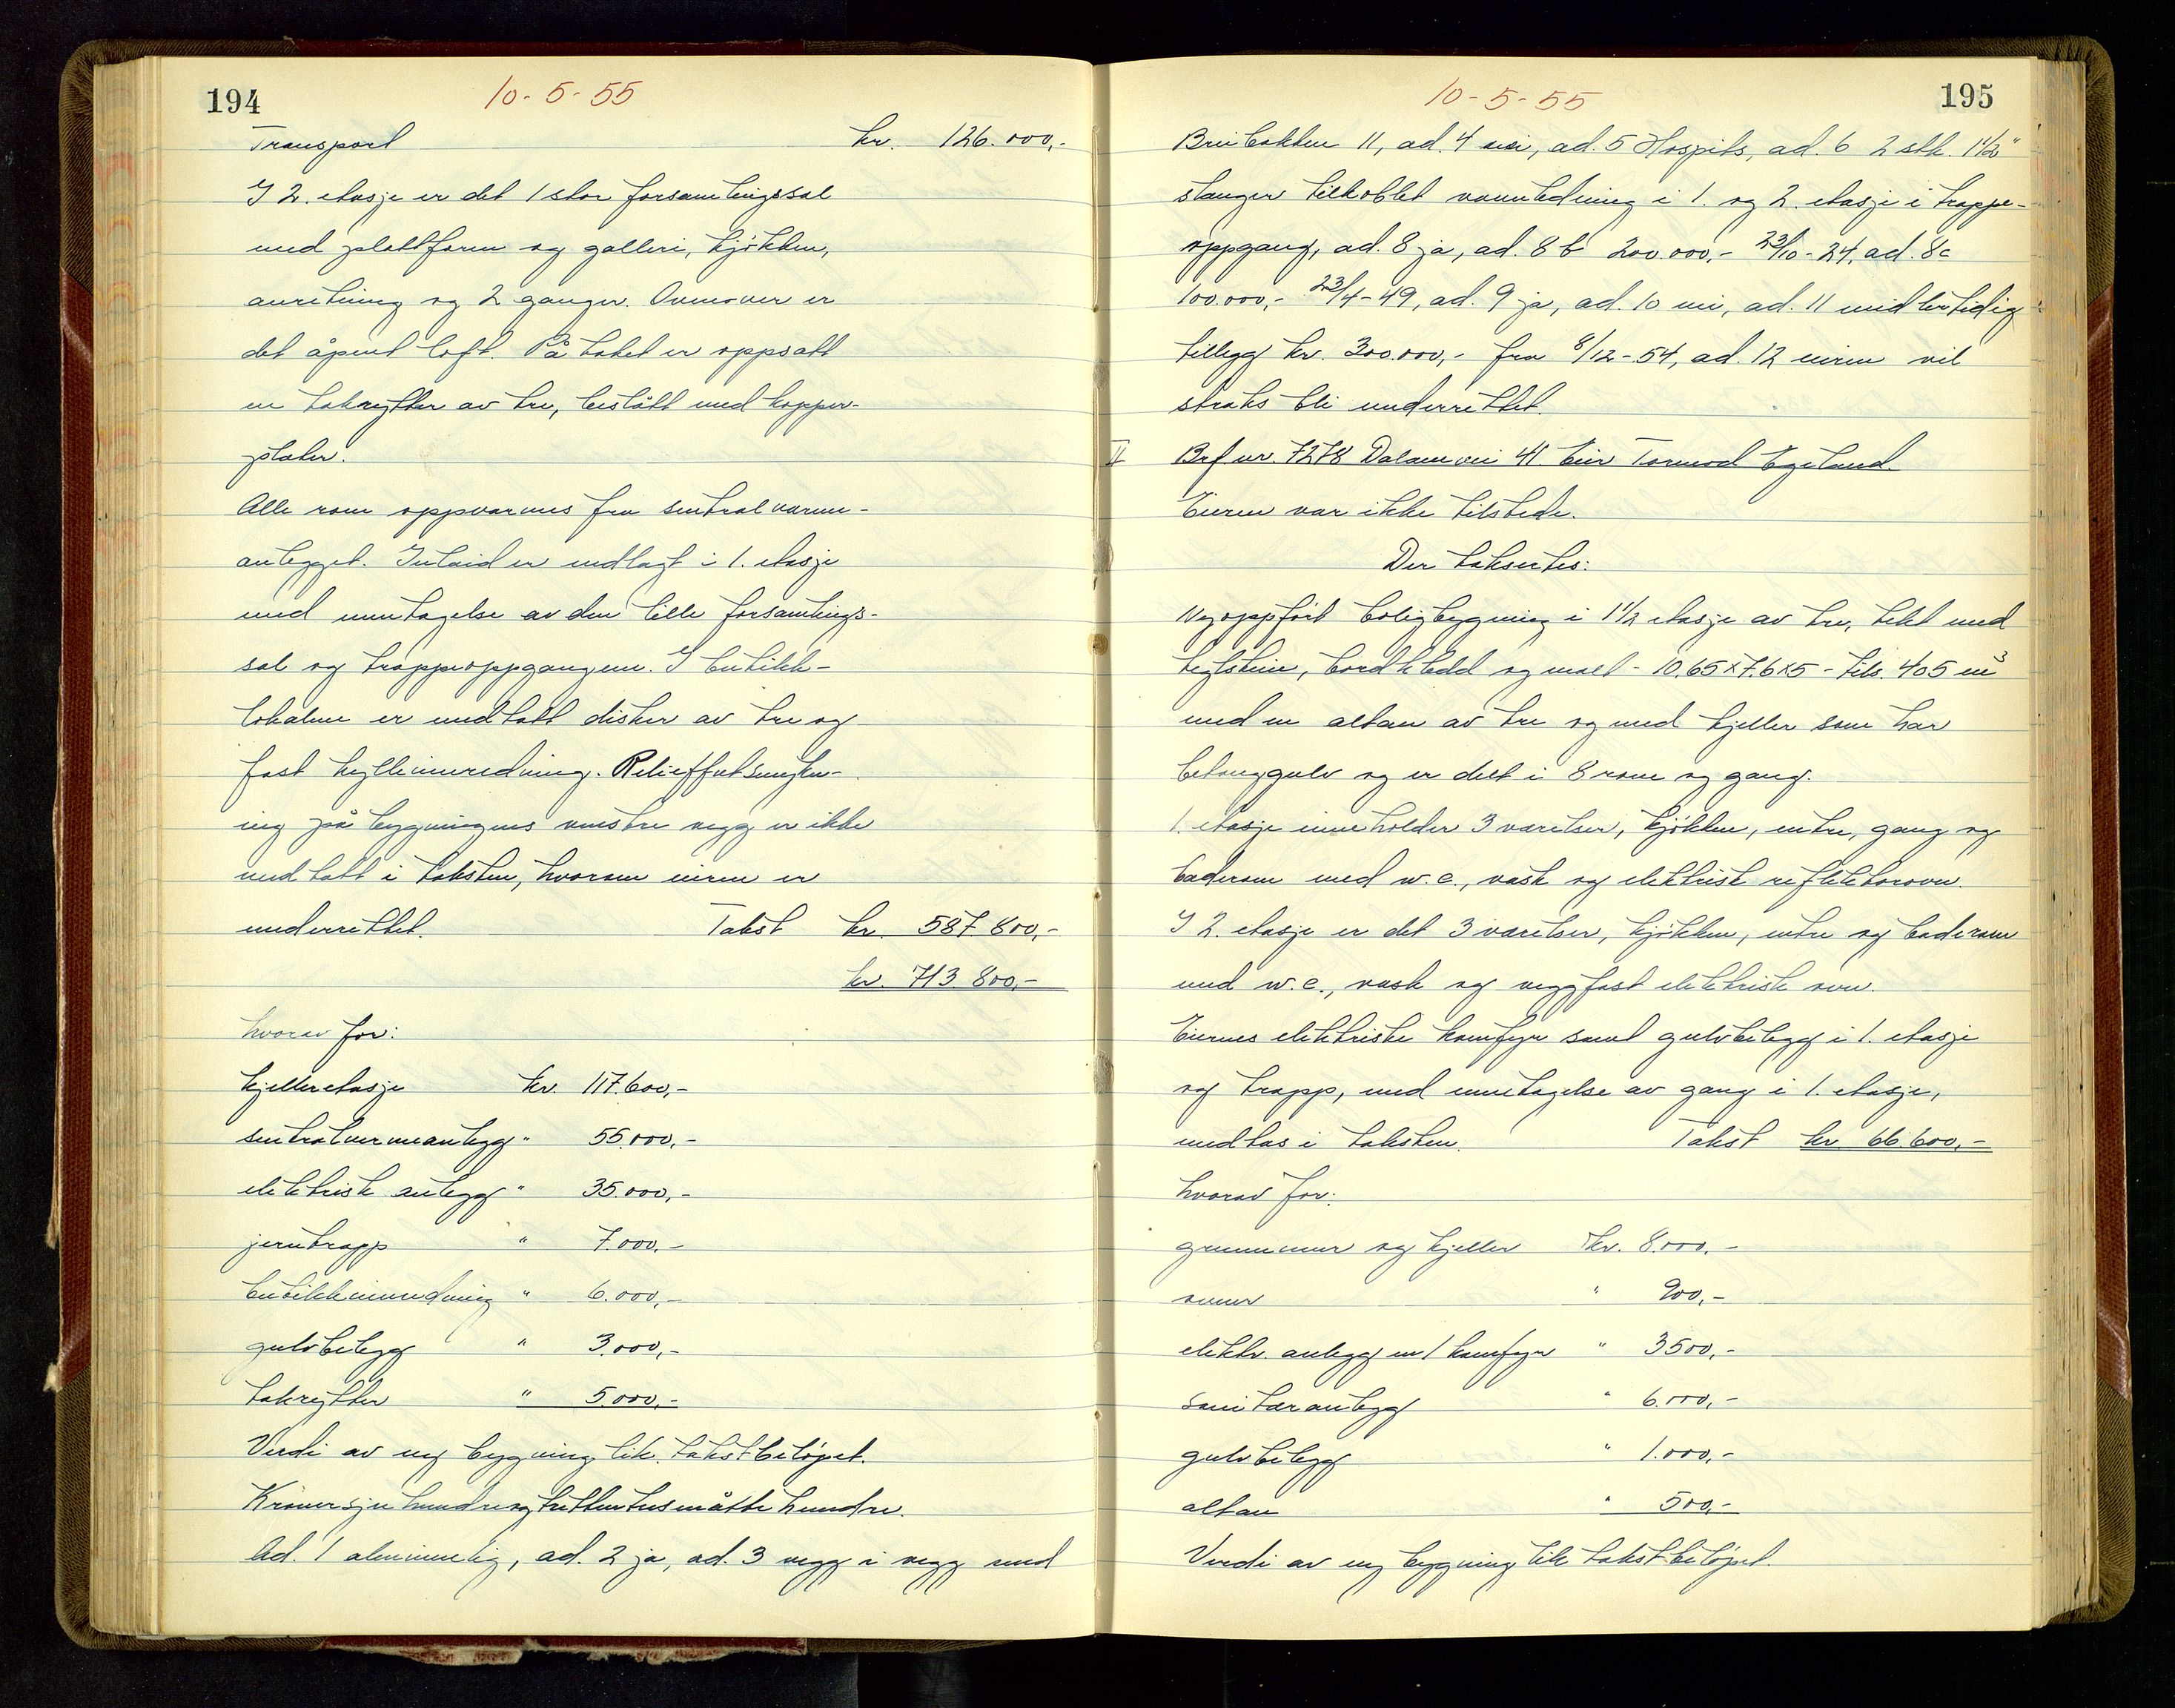 194
10-5-55
Transport kr. 126.000,-
I 2. etasje er det 1 stor forsamlingssal
med plattform og galleri, kjökken,
anretning og 2 ganger. Ovenover er
det åpent loft. På taket er oppsatt
en takrytter av tre, beslått med kopper-
plater.
Alle rom oppvarmes fra sentralvarme-
anlegget. Inlaid er medlagt i 1. etasje
med unntagelse av den lille forsamlings-
sal og trappeoppgangene. I butikk-
lokalene er medtatt disker av tre og
fast hylleinnredning. Relieffutsmykn-
ing på bygningens venstre vegg er ikke
medtatt i taksten, hvorom eieren er
underrettet. Takst kr. 587 800,-
kr. 713 800,-
hvorav for:
kjelleretasje kr. 117.600,-
sentralvarmeanlegg " 55.000,-
elektrisk anlegg " 35.000,-
jerntrapp " 7.000,-
butikkinnredning " 6.000,-
gulvbelegg " 3.000,-
takrytter " 5.000,-
Verdi av ny bygning lik takstbelöpet.
Kroner sju hundre og tretten tusen åtte hundre.
Ad. 1 alminnelig, ad. 2 ja, ad. 3 vegg i vegg med
195
10-5-55
Breibakken 11, ad. 4 nei, ad. 5 Hospits, ad. 6 2 stk. 1 1/2"
slanger tilkoblet vannledning i 1. og 2. etasje i trappe-
oppgang, ad. 8 ja, ad. 8 b 200.000,- 23/10-24, ad. 8c
100.000,- 23/4-49, ad. 9 ja, ad. 10 nei, ad. 11 midlertidig
tillegg kr. 300.000,- fra 8/12-54, ad. 12 eieren vil
straks bli underrettet.
II Brf nr. 7278 Dalane vei 41 Eier Tormod Egeland.
Eieren var ikke tilstede.
Der taksertes:
Nyoppfört boligbygning i 1 1/2 etasje av tre, tekt med
teglstein, bordkledd og malt - 10.65 x 7.6 x 5 - tils. 405 m³
med en altan av tre og med kjeller som har
betonggulv og er delt i 8 rom og gang.
1. etasje inneholder 3 værelser, kjökken, entre, gang og
baderom med w.c., vask og elektrisk reflektorovn.
I 2. etasje er det 3 værelser, kjökken, entre og baderom
med w.c., vask og veggfast elektrisk ovn.
Eierens elektriske komfyr samt gulvbelegg i 1. etasje
og trapp, med unntagelse av gang i 1. etasje,
medtas i taksten. Takst kr. 66.600,-
hvorav for:
grunnmur og kjeller kr. 8.000,-
ovner " 900,-
elektr. anlegg m/komfyr " 3500,-
sanitæranlegg " 6.000,-
gulvbelegg " 1.000,-
altan " 500,-
Verdi av ny bygning lik takstbelöpet.